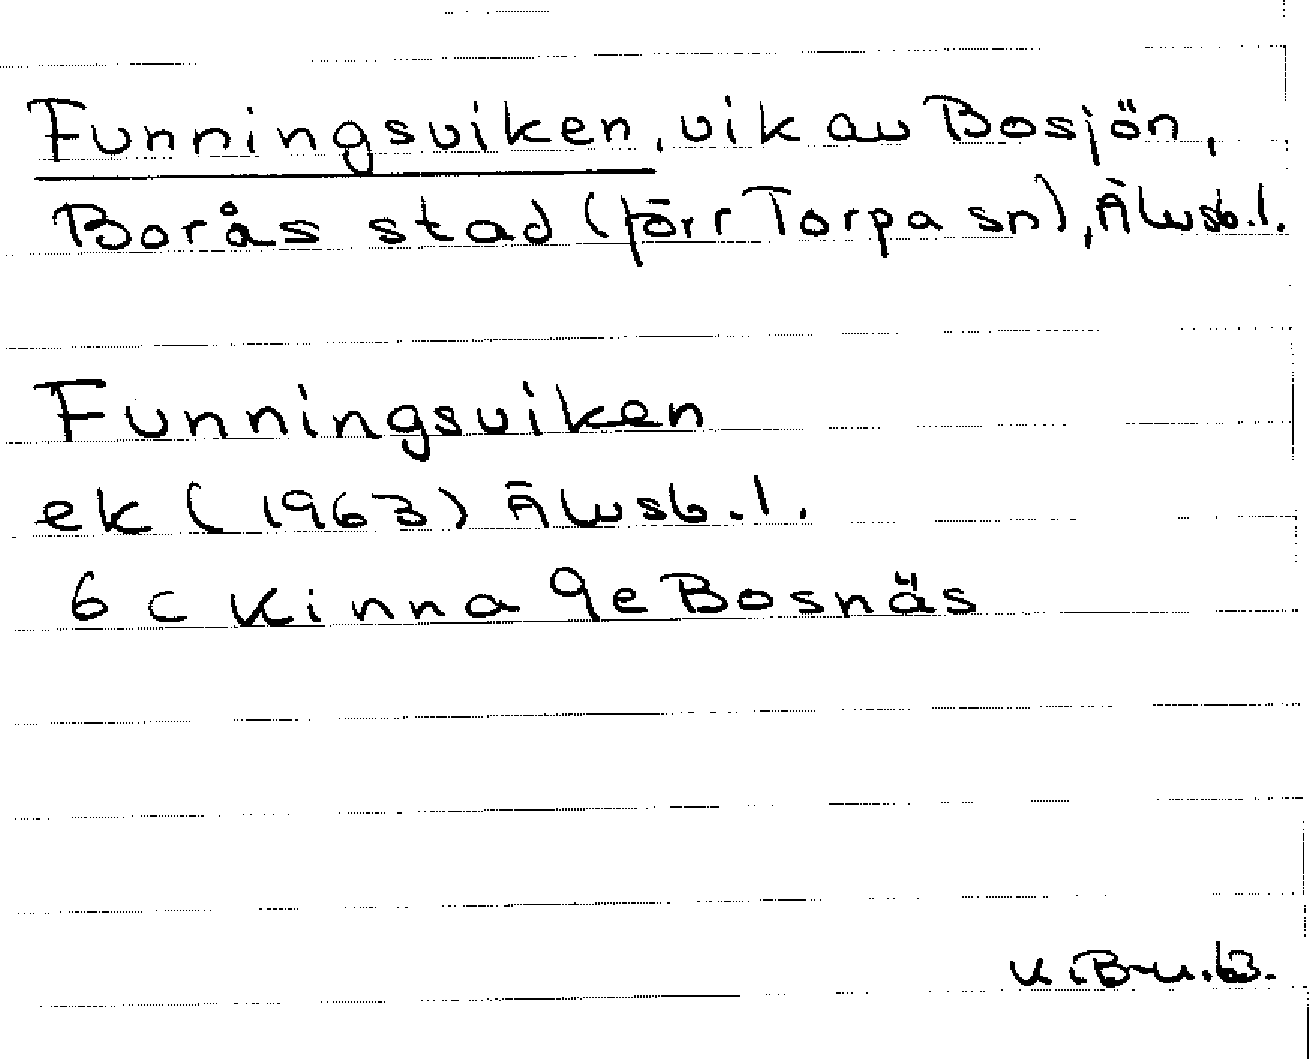 Funningsviken, vik av Bosjön,
Borås stad (förr Torpa sn), Älvsb. l.
Funningsviken
ek (1963) Älvsb. l.
6 c Kinna 9e Bosnäs
63.